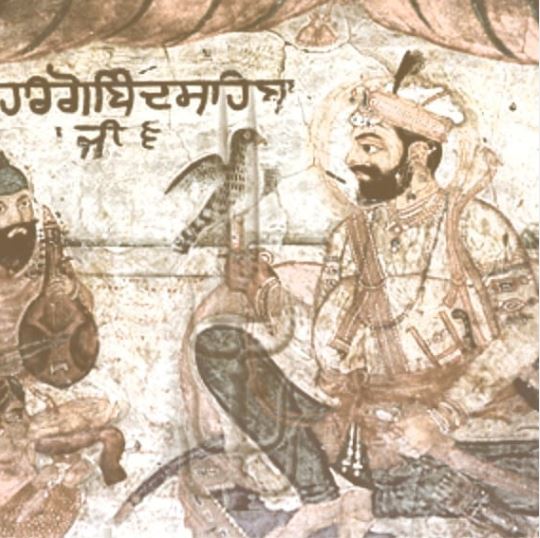 ਹਰਿਗੋਬਿੰਦਸਾਹਿਬ
ਜੀ ੬